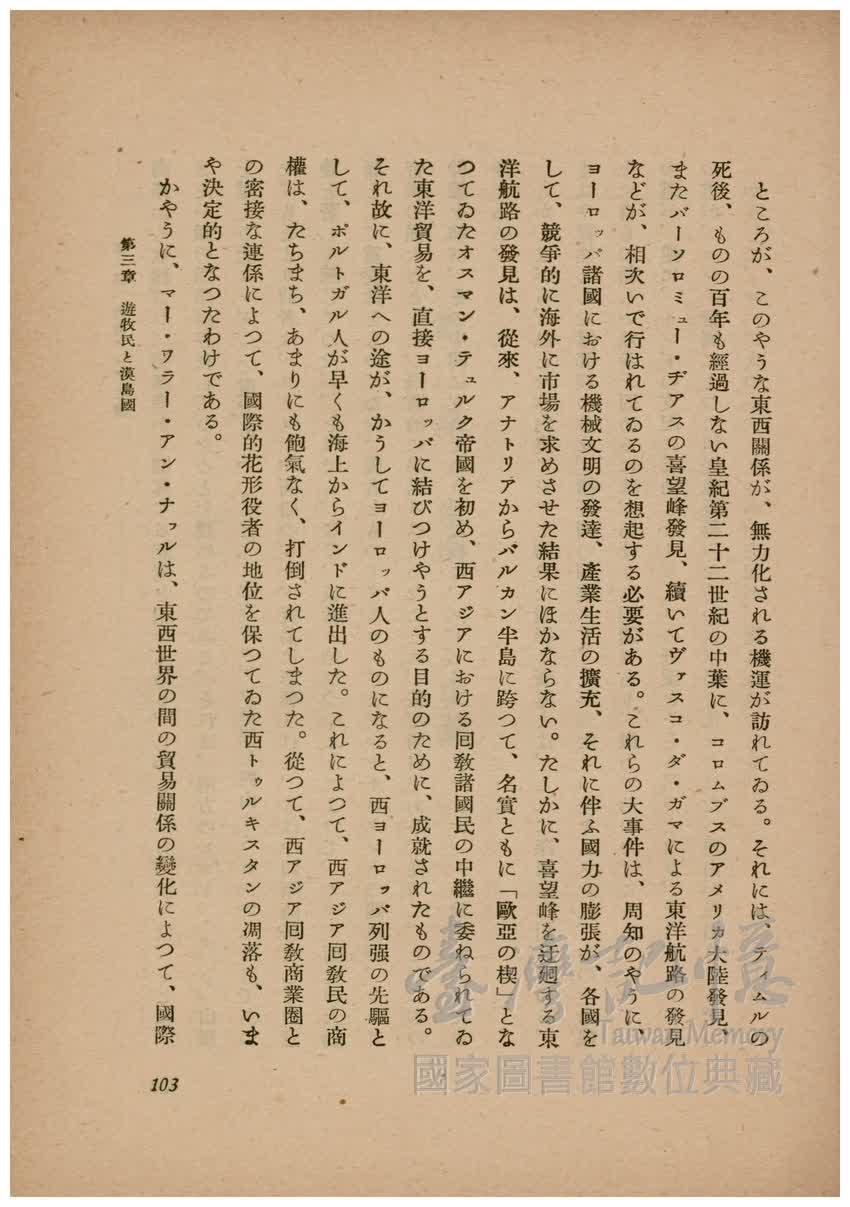 ところが、このやうな東西關係が、無力化される機運が訪れてゐる。それには、ティムルの
死後、ものの百年も經過しない皇紀第二十二世紀の中葉に、コロムブスのアメリカ大陸發見、
またバーソロミュー・ヂアスの喜望峰發見、續いてヴァスコ・ダ・ガマによる東洋航路の發見
などが、相次いで行はれてゐるのを想起する必要がある。これらの大事件は、周知のやうに、
ヨーロッパ諸國における機械文明の發達、產業生活の擴充、それに伴ふ國力の膨張が、各國を
して、競爭的に海外に市場を求めさせた結果にほかならない。たしかに、喜望峰を迂廻する東
洋航路の發見は、從來、アナトリアからバルカン半島に跨つて、名實ともに「歐亞の楔」とな
つてゐたオスマン・テュルク帝國を初め、西アジアにおける囘敎諸國民の中繼に委ねられてゐ
た東洋貿易を、直接ヨーロッパに結びつけやうとする目的のために、成就されたものである。
それ故に、東洋への途が、かうしてヨーロッパ人のものになると、西ヨーロッパ列强の先驅と
して、ポルトガル人が早くも海上からインドに進出した。これによつて、西アジア囘敎民の商
權は、たちまち、あまりにも飽氣なく、打倒されてしまつた。從つて、西アジア囘敎商業圈と
の密接な連係によつて、國際的花形役者の地位を保つてゐた西トゥルキスタンの凋落も、いま
や決定的となつたわけである。
かやうに、マー・ワラー・アン・ナッルは、東西世界の間の貿易關係の變化によつて、國際
第三章 遊牧民と漠島國
103
臺灣記憶
Taiwan Memory
國家圖書館數位典藏